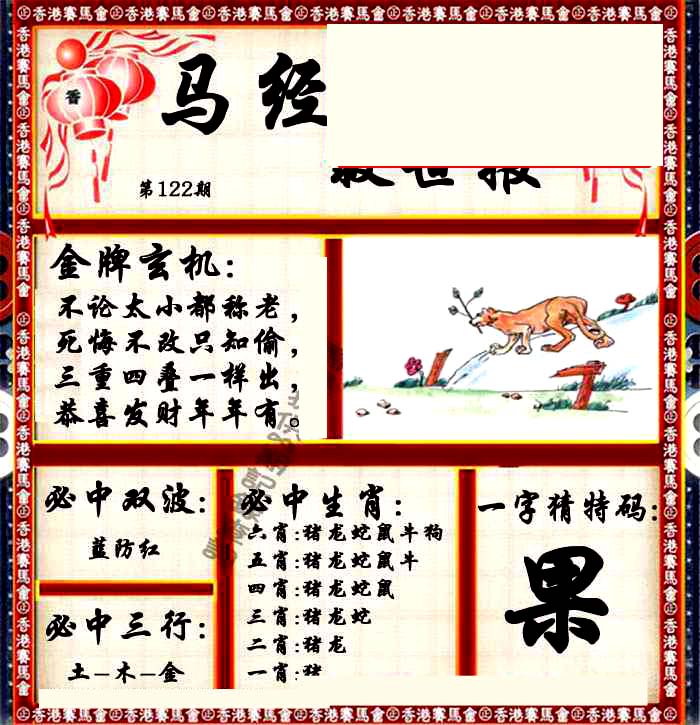 香港賽馬會㊣香港賽馬會㊣香港賽馬會㊣香港賽馬會㊣香港賽馬會㊣香港賽馬會
香
马经
救世报
第122期
金牌玄机:
不论太小都称老,
死悔不改只知偷,
三重四叠一样出,
恭喜发财年年有。
必中双波:
蓝防红
必中三行:
土-木-金
必中生肖:
六肖:猪龙蛇鼠牛狗
五肖:猪龙蛇鼠牛
四肖:猪龙蛇鼠
三肖:猪龙蛇
二肖:猪龙
一肖:猪
一字猜特码:
果